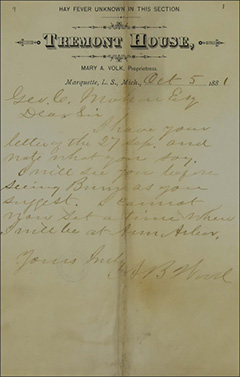 HAY FEVER UNKNOWN IN THIS SECTION.
TREMONT HOUSE,
MARY A. VOLK, Proprietress.
Marquette, L. S., Mich., Oct 5 1881
Geo. C. Esq
Dear Sir
I have your
letter of the 27 Sep. and
note what you say.
I will see you before
seeing as you
suggest. I cannot
now set a time when
I will be at Ann Arbor.
Yours truly